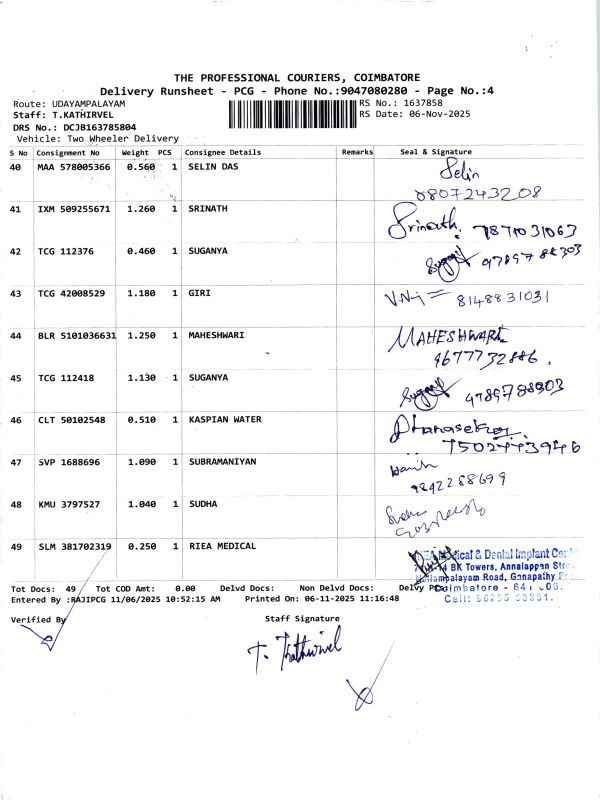 THE PROFESSIONAL COURIERS, COIMBATORE
Delivery Runsheet - PCG - Phone No.:9047080280 - Page No.:4
Route: UDAYAMPALAYAM RS No.: 1637858
Staff: T.KATHIRVEL RS Date: 06-Nov-2025
DRS No.: DCJB163785804
Vehicle: Two Wheeler Delivery
S No Consignment No Weight PCS Consignee Details Remarks Seal & Signature
40 MAA 578005366 0.560 1 SELIN DAS Selin
8072243208
41 IXM 509255671 1.260 1 SRINATH Srinath. 7871031063
42 TCG 112376 0.460 1 SUGANYA Sugany 9789788303
43 TCG 42008529 1.180 1 GIRI 8148831031
44 BLR 5101036631 1.250 1 MAHESHWARI MAHESHWARI
9677732886.
45 TCG 112418 1.130 1 SUGANYA Sugany 9789788303
46 CLT 50102548 0.510 1 KASPIAN WATER Dhanasekar
7502443946
47 SVP 1688696 1.090 1 SUBRAMANIYAN
9842288699
48 KMU 3797527 1.040 1 SUDHA Sudha
49 SLM 381702319 0.250 1 RIEA MEDICAL
& Dental Implant
14 BK Towers, Annalappan
Road, Ganapathy
Coimbatore - 641 006.
Cell:
Tot Docs: 49 Tot COD Amt: 0.00 Delvd Docs: Non Delvd Docs: Delvy
Entered By :RAJIPCG 11/06/2025 10:52:15 AM Printed On: 06-11-2025 11:16:48
Verified By Staff Signature
T. Kathirvel